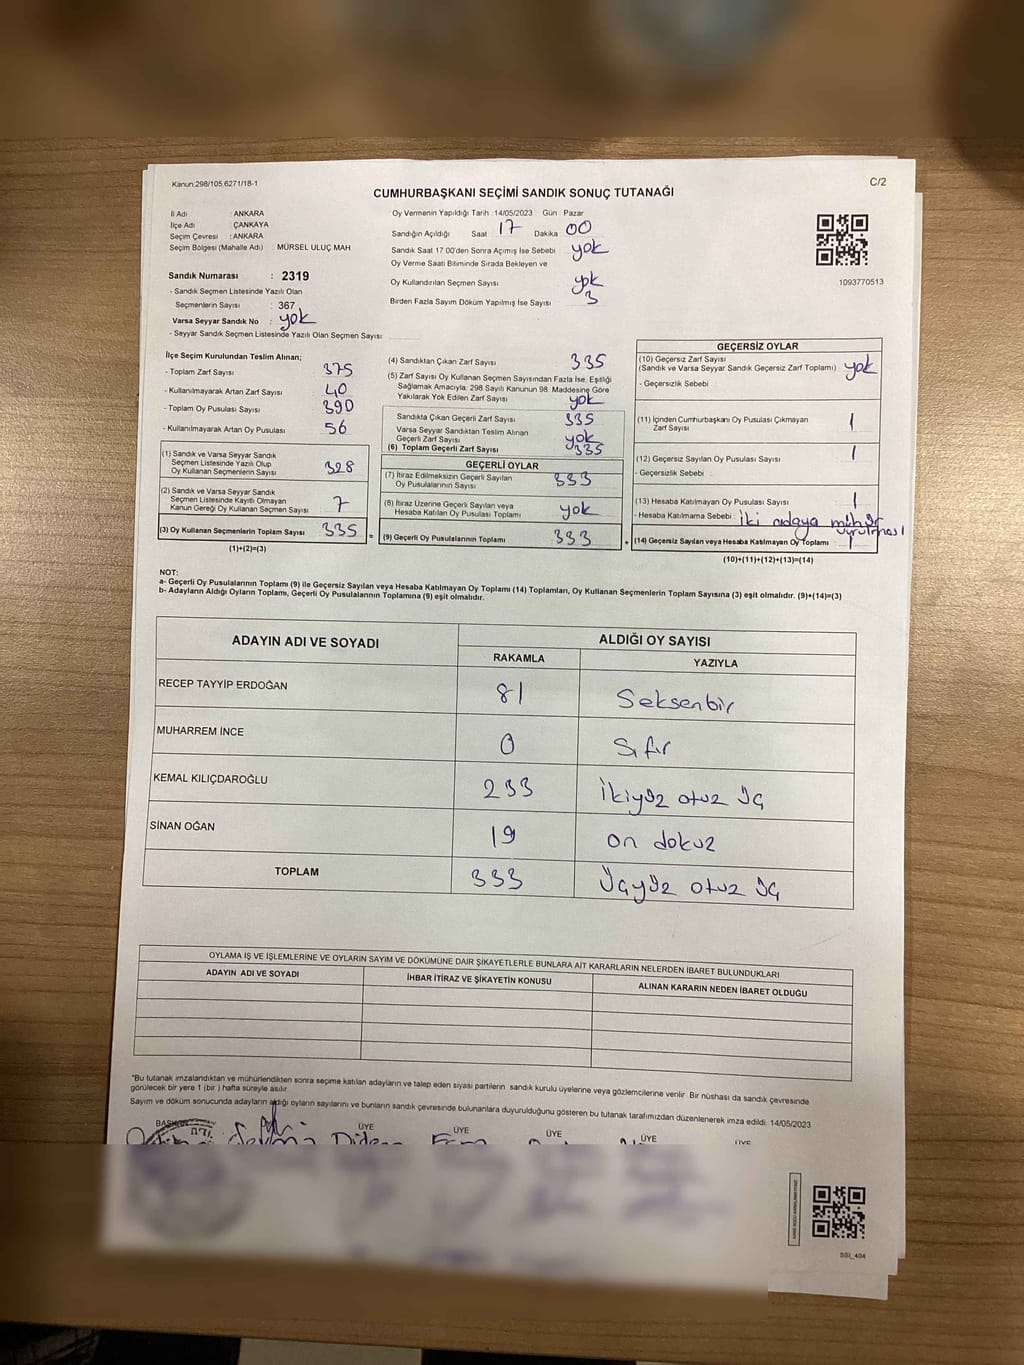 Kanun:298/105,6271/18-1
C/2
CUMHURBAŞKANI SEÇİMİ SANDIK SONUÇ TUTANAĞI
İl Adı : ANKARA
İlçe Adı : ÇANKAYA
Seçim Çevresi : ANKARA
Seçim Bölgesi (Mahalle Adı) : MÜRSEL ULUÇ MAH
Sandık Numarası : 2319
- Sandık Seçmen Listesinde Yazılı Olan
Seçmenlerin Sayısı : 367
Varsa Seyyar Sandık No : yok
- Seyyar Sandık Seçmen Listesinde Yazılı Olan Seçmen Sayısı:
Oy Vermenin Yapıldığı Tarih :14/05/2023 Gün : Pazar
Sandığın Açıldığı Saat 17 Dakika 00
Sandık Saat 17.00'den Sonra Açımış İse Sebebi yok
Oy Verme Saati Bitiminde Sırada Bekleyen ve
Oy Kullandırılan Seçmen Sayısı yok
Birden Fazla Sayım Döküm Yapılmış İse Sayısı 3
1093770513
İlçe Seçim Kurulundan Teslim Alınan;
- Toplam Zarf Sayısı 375
- Kullanılmayarak Artan Zarf Sayısı 40
- Toplam Oy Pusulası Sayısı 390
- Kullanılmayarak Artan Oy Pusulası 56
(1) Sandık ve Varsa Seyyar Sandık
Seçmen Listesinde Yazılı Olup
Oy Kullanan Seçmenlerin Sayısı 328
(2) Sandık ve Varsa Seyyar Sandık
Seçmen Listesinde Kayıtlı Olmayan
Kanun Gereği Oy Kullanan Seçmen Sayısı 7
(3) Oy Kullanan Seçmenlerin Toplam Sayısı 335 =
(1)+(2)=(3)
(4) Sandıktan Çıkan Zarf Sayısı 335
(5) Zarf Sayısı Oy Kullanan Seçmen Sayısından Fazla İse, Eşitliği
Sağlamak Amacıyla; 298 Sayılı Kanunun 98. Maddesine Göre
Yakılarak Yok Edilen Zarf Sayısı yok
Sandıkta Çıkan Geçerli Zarf Sayısı 335
Varsa Seyyar Sandıktan Teslim Alınan
Geçerli Zarf Sayısı yok
(6) Toplam Geçerli Zarf Sayısı 335
GEÇERLİ OYLAR
(7) İtiraz Edilmeksizin Geçerli Sayılan
Oy Pusulalarının Sayısı 333
(8) İtiraz Üzerine Geçerli Sayılan veya
Hesaba Katılan Oy Pusulası Toplamı yok
(9) Geçerli Oy Pusulalarının Toplamı 333 +
GEÇERSİZ OYLAR
(10) Geçersiz Zarf Sayısı
(Sandık ve Varsa Seyyar Sandık Geçersiz Zarf Toplamı) yok
- Geçersizlik Sebebi :
(11) İçinden Cumhurbaşkanı Oy Pusulası Çıkmayan
Zarf Sayısı 1
(12) Geçersiz Sayılan Oy Pusulası Sayısı 1
- Geçersizlik Sebebi :
(13) Hesaba Katılmayan Oy Pusulası Sayısı 1
- Hesaba Katılmama Sebebi : iki adaya mühür
vurulması
(14) Geçersiz Sayılan veya Hesaba Katılmayan Oy Toplamı 1
(10)+(11)+(12)+(13)=(14)
NOT:
a- Geçerli Oy Pusulalarının Toplamı (9) ile Geçersiz Sayılan veya Hesaba Katılmayan Oy Toplamı (14) Toplamları, Oy Kullanan Seçmenlerin Toplam Sayısına (3) eşit olmalıdır. (9)+(14)=(3)
b- Adayların Aldığı Oyların Toplamı, Geçerli Oy Pusulalarının Toplamına (9) eşit olmalıdır.
ADAYIN ADI VE SOYADI ALDIĞI OY SAYISI
RAKAMLA YAZIYLA
RECEP TAYYİP ERDOĞAN 81 Seksenbir
MUHARREM İNCE 0 Sıfır
KEMAL KILIÇDAROĞLU 233 İkiyüz otuz üç
SİNAN OĞAN 19 on dokuz
TOPLAM 333 Üçyüz otuz üç
OYLAMA İŞ VE İŞLEMLERİNE VE OYLARIN SAYIM VE DÖKÜMÜNE DAİR ŞİKAYETLERLE BUNLARA AİT KARARLARIN NELERDEN İBARET BULUNDUKLARI
ADAYIN ADI VE SOYADI İHBAR İTİRAZ VE ŞİKAYETİN KONUSU ALINAN KARARIN NEDEN İBARET OLDUĞU
"Bu tutanak imzalandıktan ve mühürlendikten sonra seçime katılan adayların ve talep eden siyasi partilerin sandık kurulu üyelerine veya gözlemcilerine verilir. Bir nüshası da sandık çevresinde
görülecek bir yere 1 (bir) hafta süreyle asılır.
Sayım ve döküm sonucunda adayların aldığı oyların sayılarını ve bunların sandık çevresinde bulunanlara duyurulduğunu gösteren bu tutanak tarafımızdan düzenlenerek imza edildi. 14/05/2023
BAŞKAN ÜYE ÜYE ÜYE ÜYE ÜYE
SSI_404